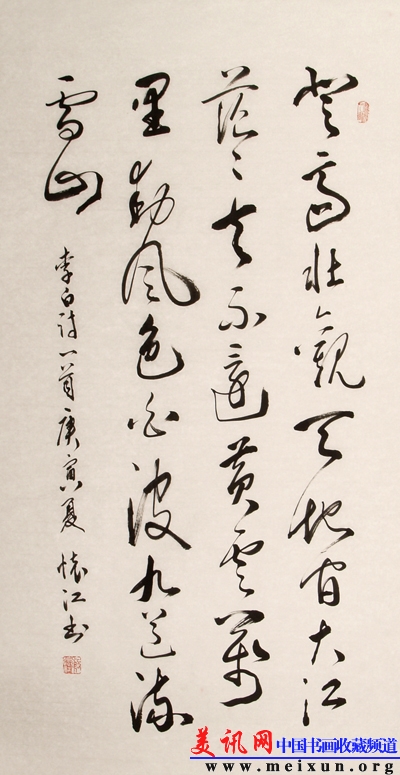 登高壯觀天地間大江
茫々去不還黃雲萬
里動風色白波九道流
雪山
李白詩一首庚寅夏 懷江书
美讯网 中国书画收藏频道
www.meixun.org